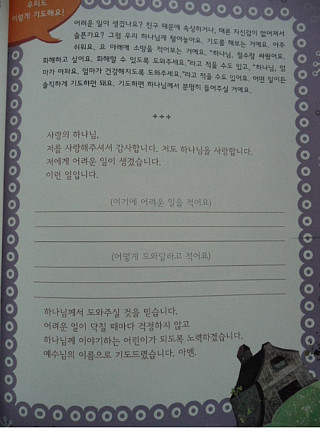 우리도
이렇게 기도해요!
어려운 일이 생겼나요? 친구 때문에 속상하거나, 때론 자신감이 없어져서
슬픈가요? 그럼 우리 하나님께 털어놓아요. 기도를 해보는 거예요. 아주
쉬워요. 요 아래에 소망을 적어보는 거예요. "하나님, 철수랑 싸웠어요.
화해하고 싶어요. 화해할 수 있도록 도와주세요."라고 적을 수도 있고, "하나님, 엄
마가 아파요. 엄마가 건강해지도록 도와주세요."라고 적을 수도 있어요. 어떤 일이든
솔직하게 기도하면 돼요. 기도하면 하나님께서 분명히 들어주실 거예요.
+++
사랑의 하나님,
저를 사랑해주셔서 감사합니다. 저도 하나님을 사랑합니다.
저에게 어려운 일이 생겼습니다.
이런 일입니다.
(여기에 어려운 일을 적어요)
(어떻게 도와달라고 적어요)
하나님께서 도와주실 것을 믿습니다.
어려운 일이 닥칠 때마다 걱정하지 않고
하나님께 이야기하는 어린이가 되도록 노력하겠습니다.
예수님의 이름으로 기도드렸습니다. 아멘.